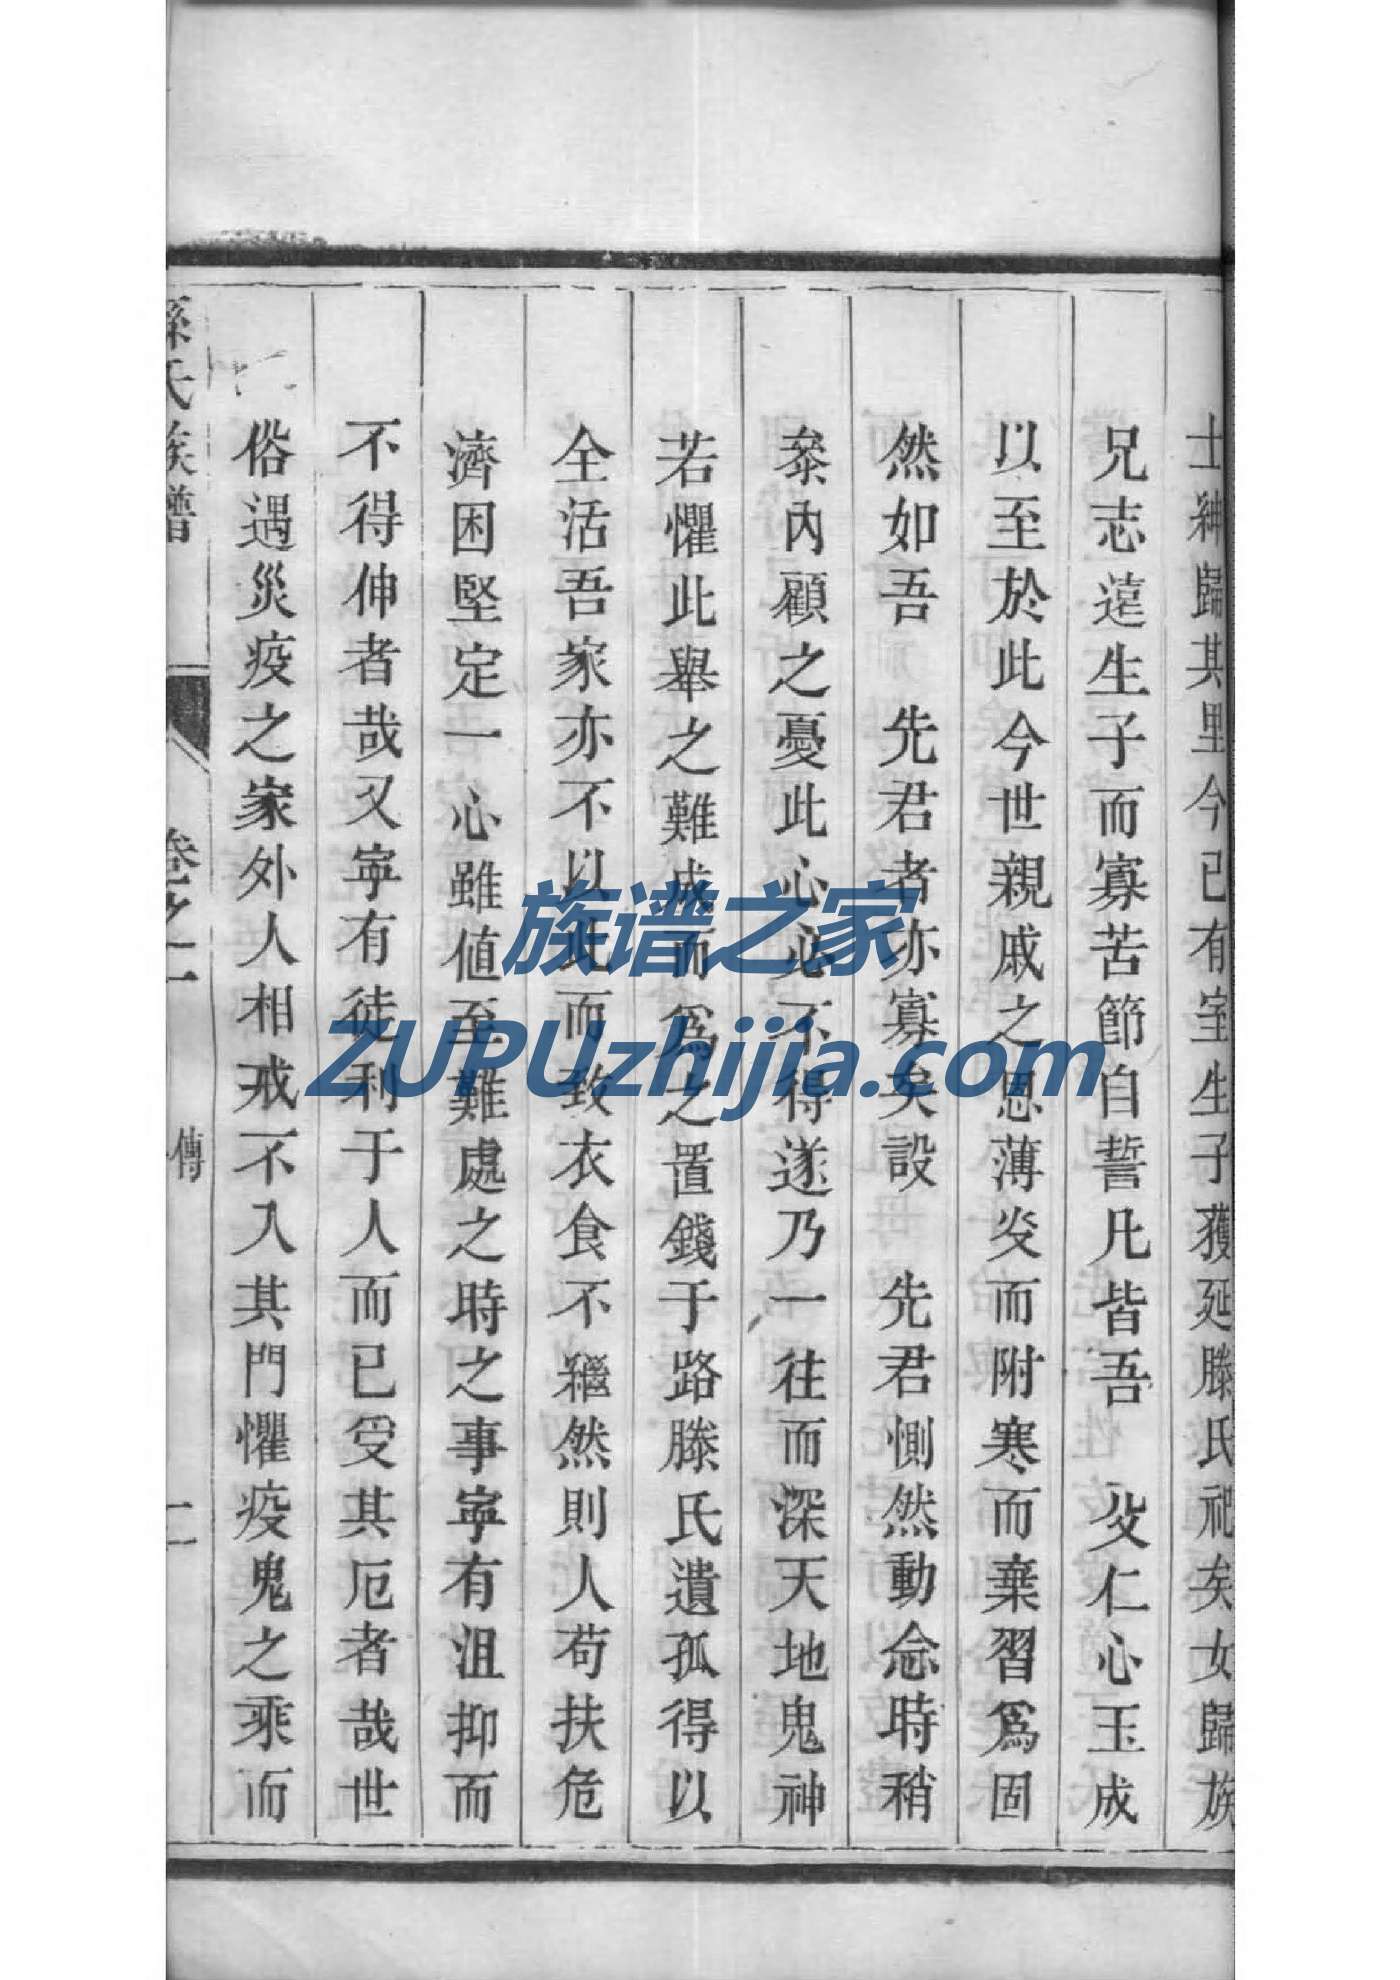 士紳歸其里今已有室生子獲延滕氏祀矣女歸族
兄志遠生子而寡苦節自誓凡皆吾 父仁心玉成
以至於此今世親戚之恩薄炎而附寒而棄習爲固
然如吾 先君者亦寡矣設 先君惻然動念時稍
叅內顧之憂此心必不得遂乃一往而深天地鬼神
若懼此舉之難成而爲之置錢于路滕氏遺孤得以
全活吾家亦不以此而致衣食不繼然則人苟扶危
濟困堅定一心雖値至難處之時之事寧有沮抑而
不得伸者哉又寧有徒利于人而已受其厄者哉世
俗遇災疫之家外人相戒不入其門懼疫鬼之乘而
孫氏族譜 卷之一 傳
族谱之家
ZUPUzhijia.com